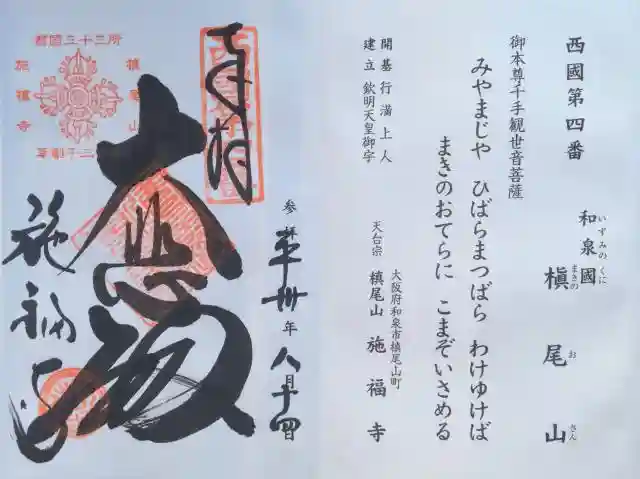 西國第四番
和泉國
いずみのくに
槇尾山
まきの お さん
御本尊千手観世音菩薩
みやまじや ひばらまつばら わけゆけば
まきのおてらに こまぞいさめる
開基 行満上人
建立 欽明天皇御宇
大阪府和泉市槙尾山町
天台宗 槙尾山 施福寺
奉拝
参拝 平卅年八月十四
大悲殿
施福寺
西国三十三所
槙尾山
施福寺